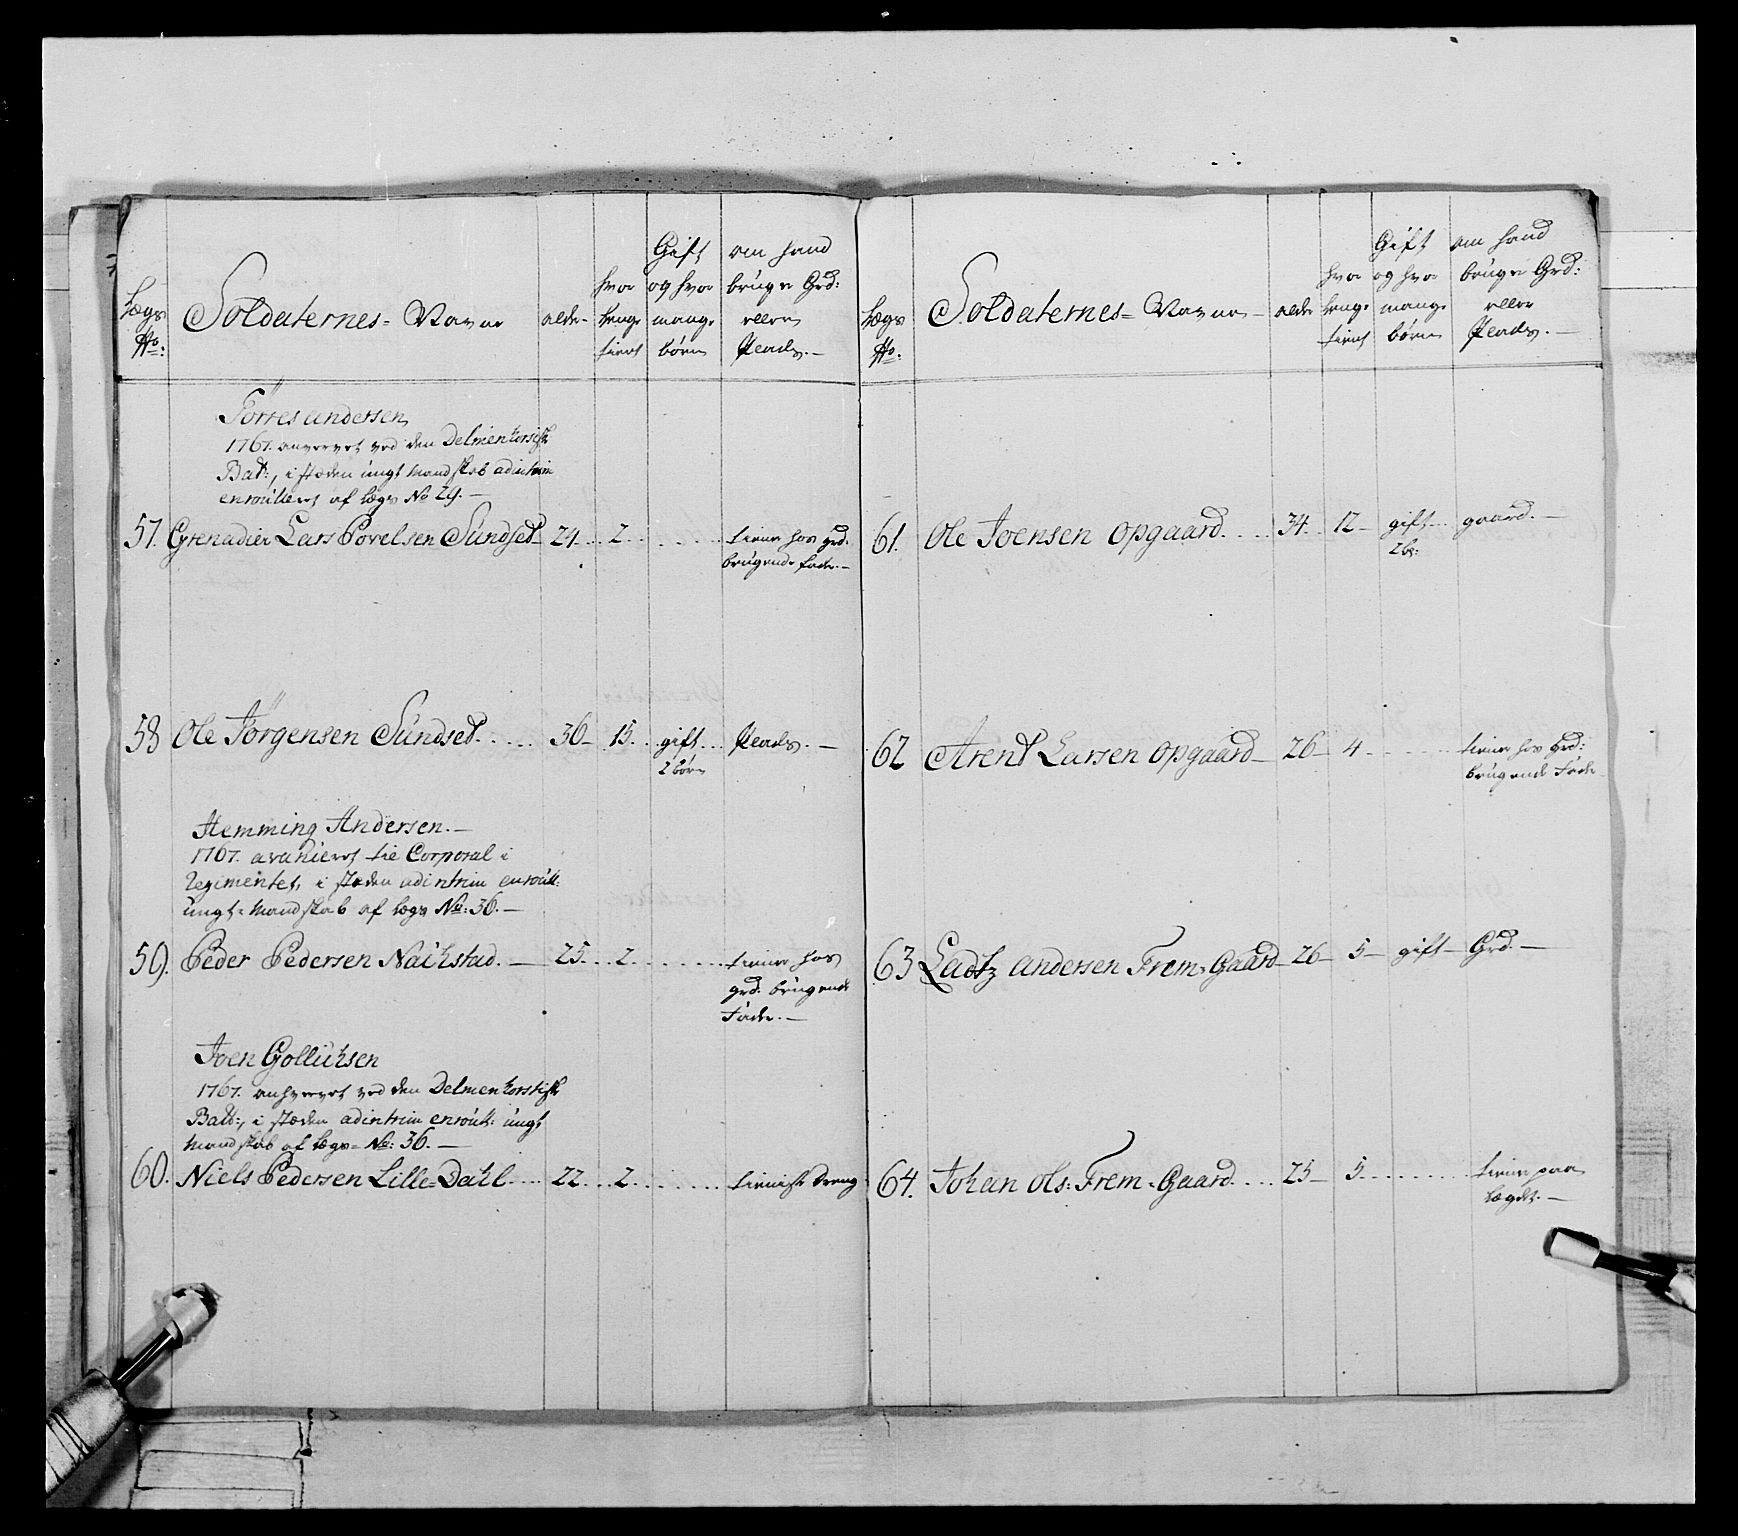 Lægs No: Soldaternes Navne alder hvor lenge tient Gift og hvor mange børn om hand bruger Grd: eller Plads.
Törres andersen
1767. anvervet ved den Delmenhorstske
Bat:, i stæden ungt Mandskab adintrim
enroulleret af Lægs No 29.
57. Grenadier Lars Povelsen Sundset 24. 2. tiener hos grd:
brugende fader.
58 Ole Jörgensen Sundset. 36 15. gift. Plads.
2 børn
Hemming Andersen.
1767. avancieret til Corporal i
Regimentet, i stæden adintrim enroull:
ungt Mandskab af Lægs No: 36.
59. Peder Pedersen Nachstad. 25. 2. tiener hos
grd. brugende
Fader.
Joen Gollichsen
1767. anhvervet ved den Delmenhorstiske
Bat:, i stæden adintrim enroull: ungt
Mandskab af Lægs No: 36.
60. Niels Pedersen Lille-Dahl. 22. 2. tieniste Dreng
Lægs No. Soldaternes Navne alder hvor lenge tient Gift og hvor mange børn om hand bruger Grd: eller Plads.
61. Ole Joensen Opgaard. 34. 12 gift gaard.
2 b:
62 Arent Larsen Opgaard 26 4 tiener hos Grd:
brugende Fader
63 Ladtz andersen Frem-Gaard 26 5 gift Grd.
64. Johan Ols: Frem-Gaard. 25 5 tiener paa
Lægdet.